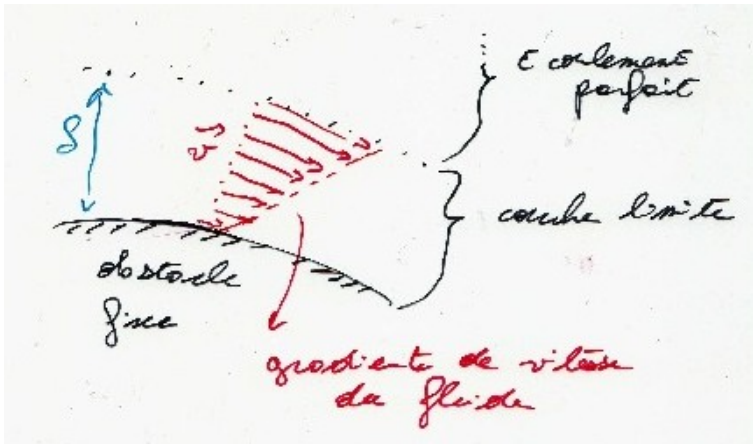 Ecoulement
parfait
δ
v
couche limite
obstacle
fixe
gradient de vitesse
du fluide